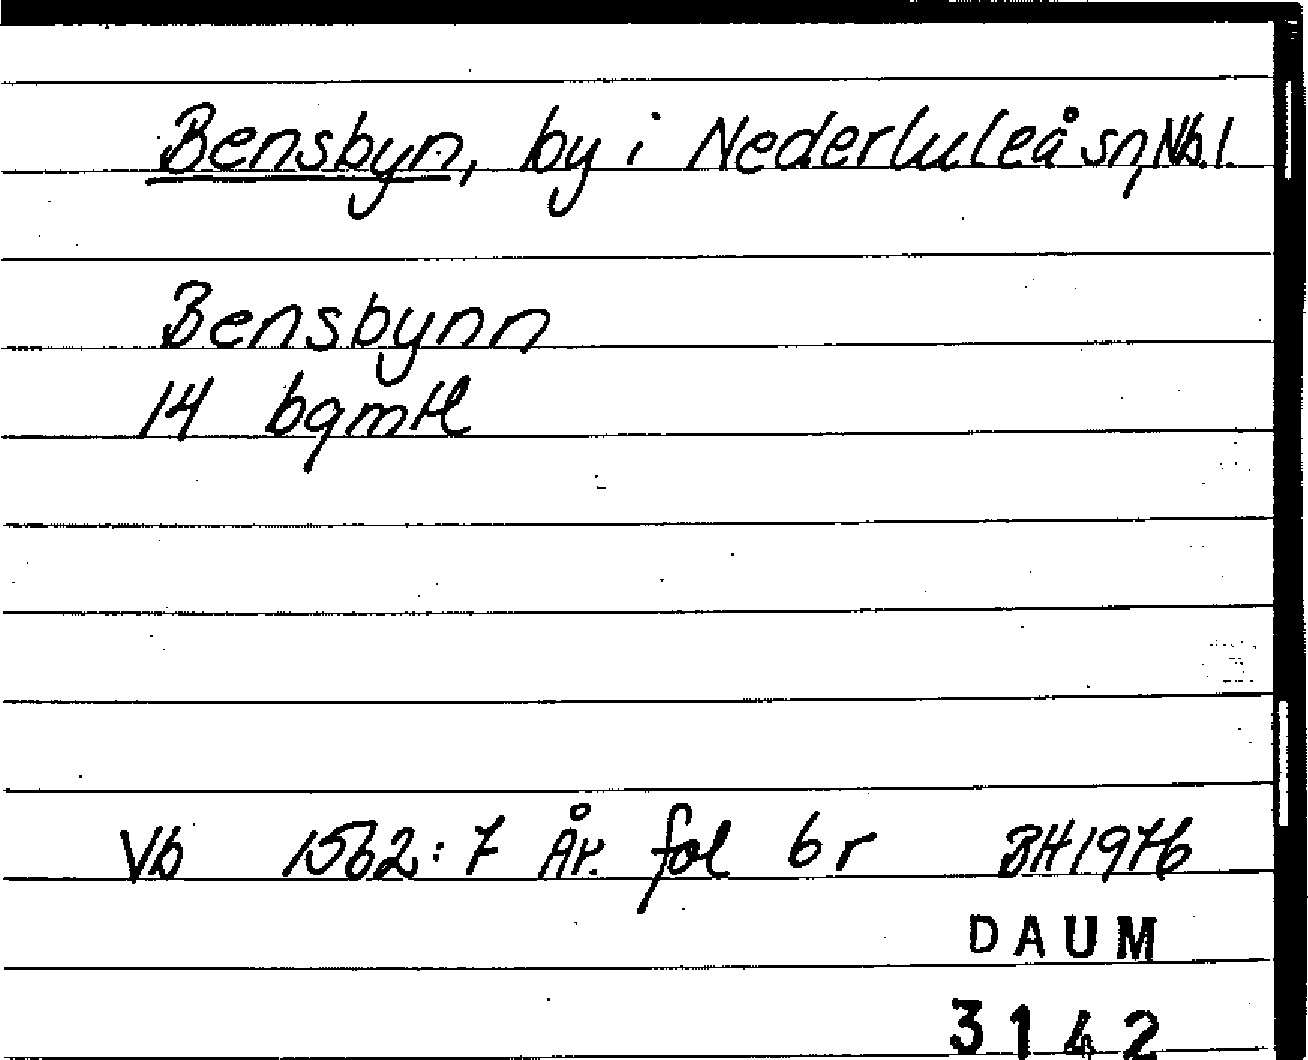 Bensbyn, by i Nederluleå sn, Nb.l.
Bensbynn
14 bgmtl
Vb 1562:7 År. fol 6r BH 1976
DAUM
3142